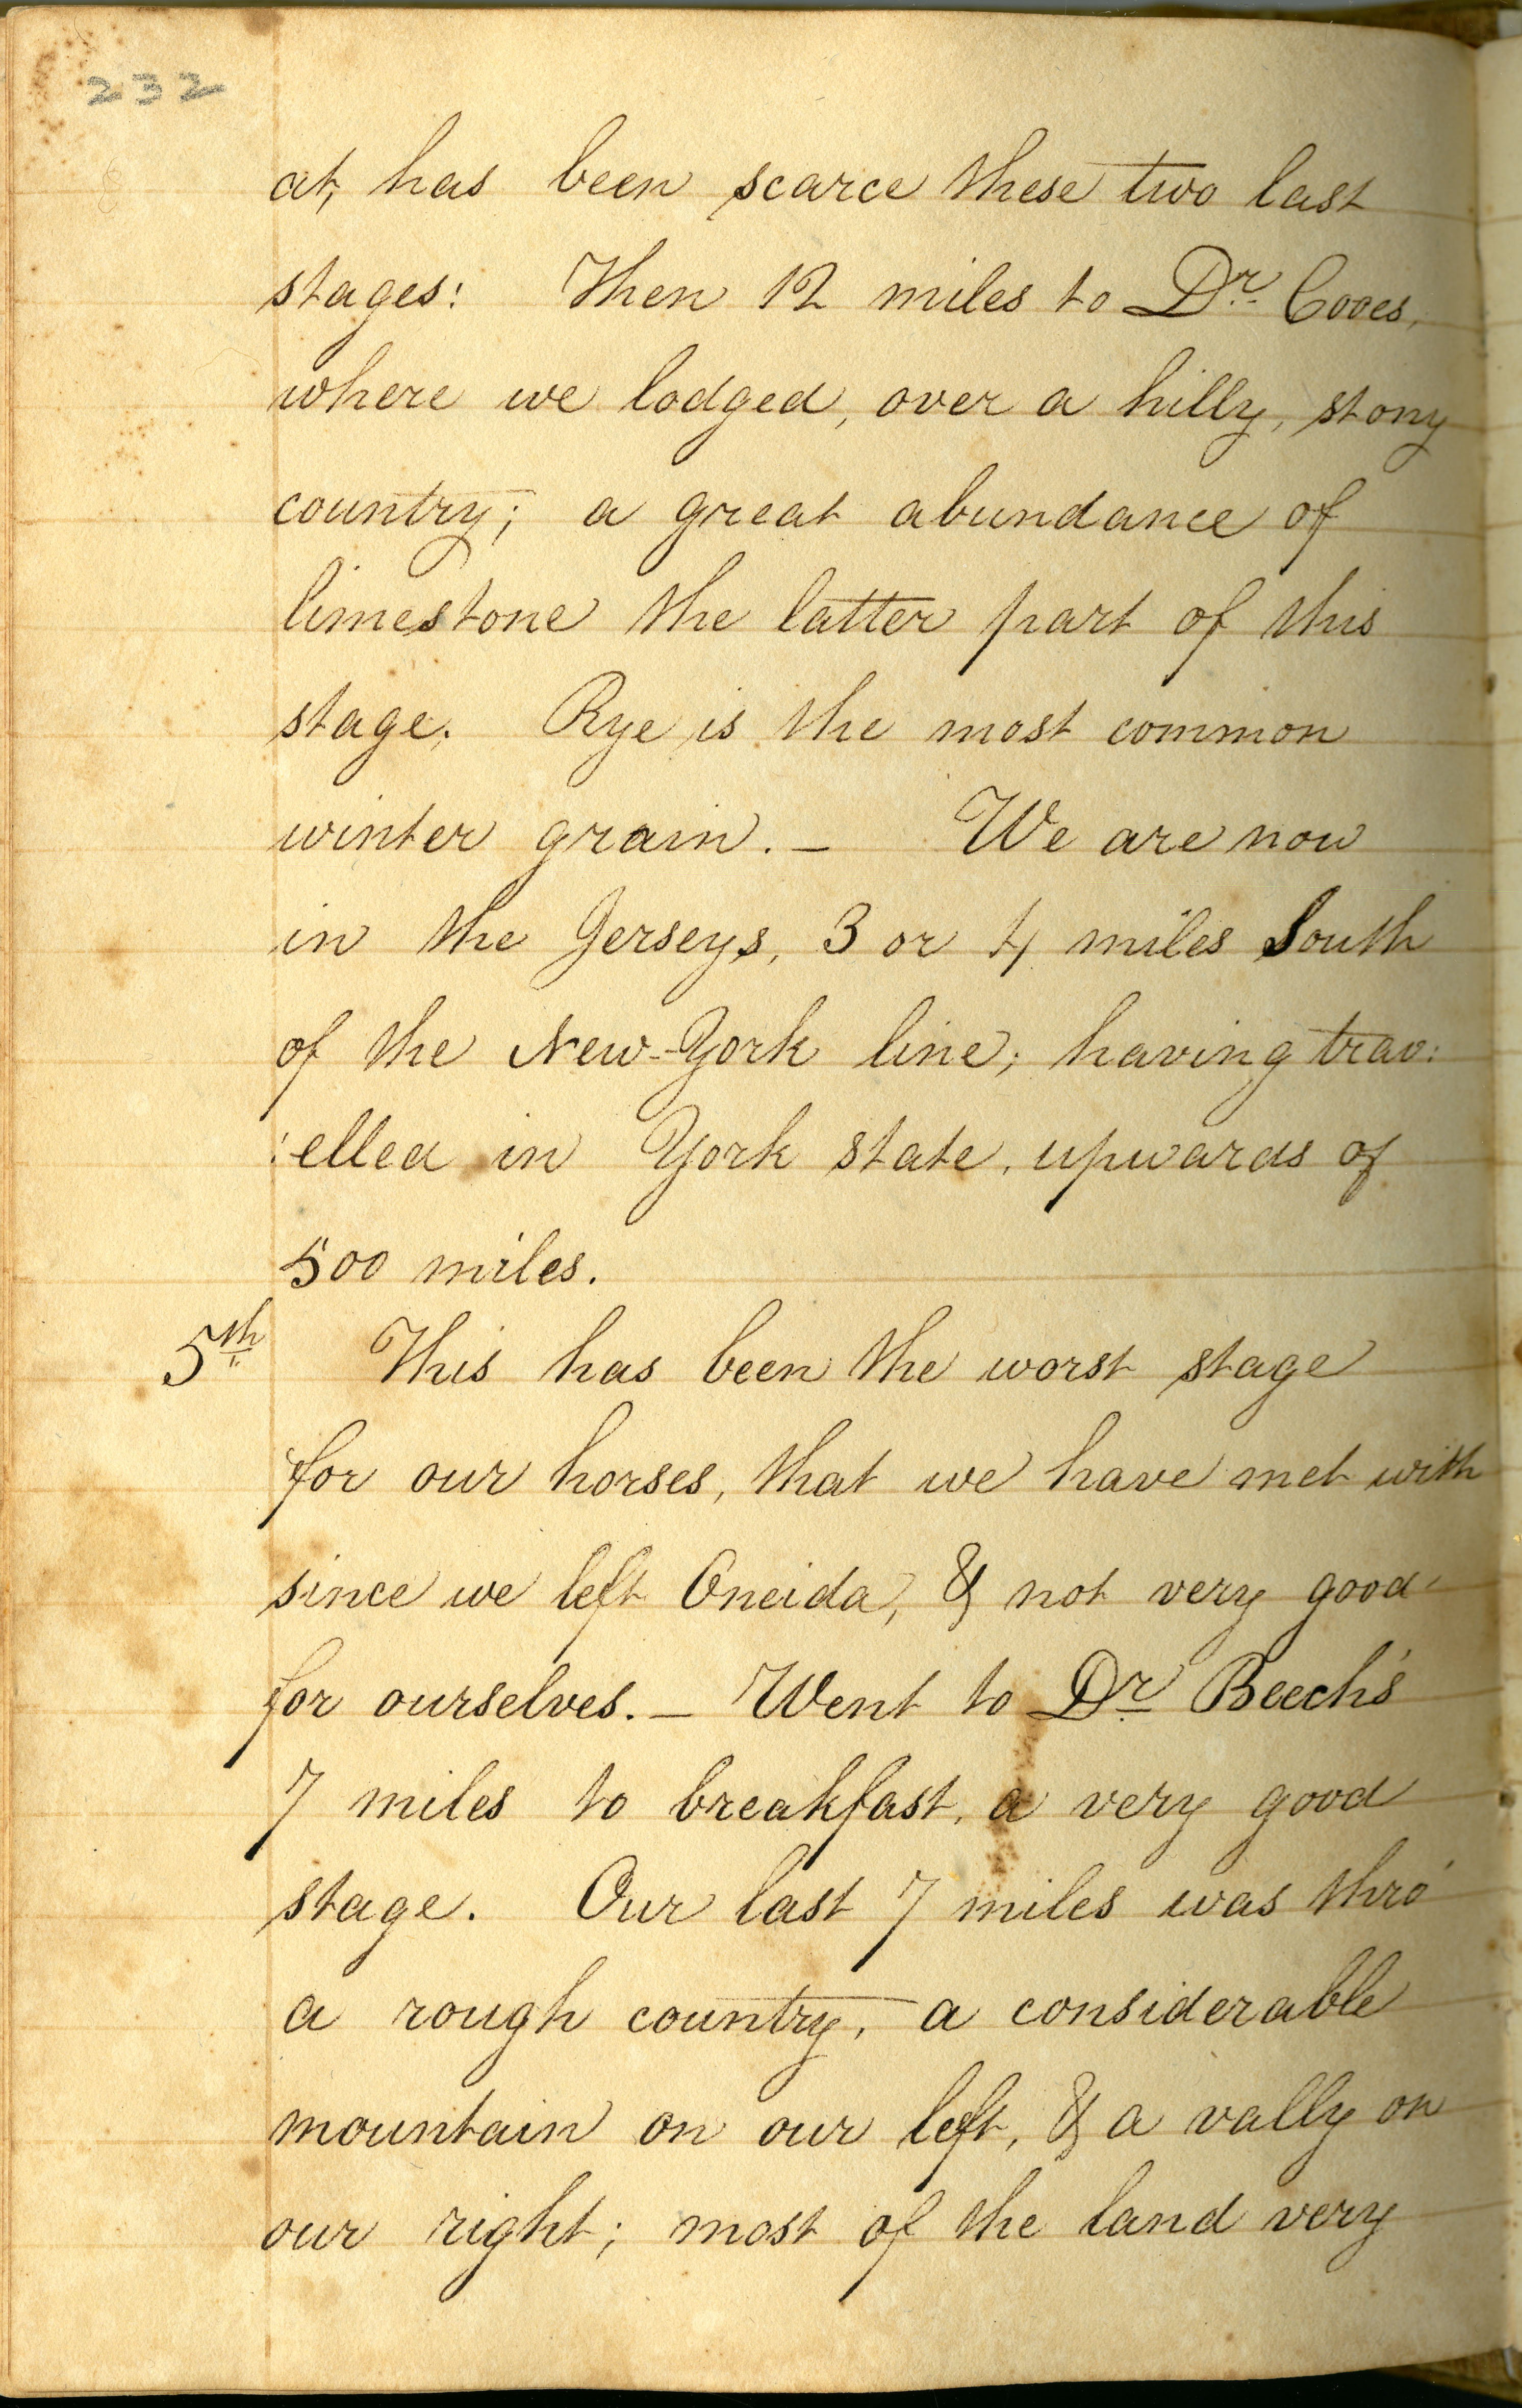 232
at, has been scarce these two last
stages: Then 12 miles to Dr. Cooes,
where we lodged, over a hilly, stony
country; a great abundance of
limestone the latter part of this
stage. Rye is the most common
winter grain. — We are now
in the Jerseys, 3 or 4 miles South
of the New-York line; having trav:
:elled in York state, upwards of
500 miles.
5th This has been the worst stage
for our horses, that we have met with
since we left Oneida, & not very good
for ourselves. — Went to Dr Beech's
7 miles to breakfast, a very good
stage. Our last 7 miles was thro'
a rough country, a considerable
mountain on our left, & a vally on
our right; most of the land very